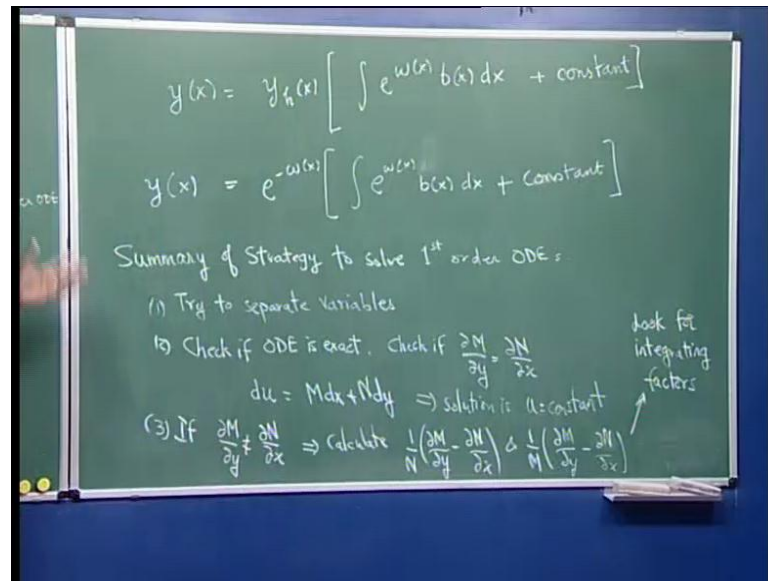 y(x) = y_h(x) [ ∫ e^{ω(x)} b(x) dx + constant ]
y(x) = e^{-ω(x)} [ ∫ e^{ω(x)} b(x) dx + Constant ]
Summary of Strategy to solve 1st order ODE :
(1) Try to separate variables
(2) Check if ODE is exact. Check if ∂M/∂y = ∂N/∂x
du = Mdx + Ndy ⇒ solution is u = constant
(3) If ∂M/∂y ≠ ∂N/∂x ⇒ Calculate 1/N (∂M/∂y - ∂N/∂x) & 1/M (∂M/∂y - ∂N/∂x)
Look for
integrating
factors
ODE